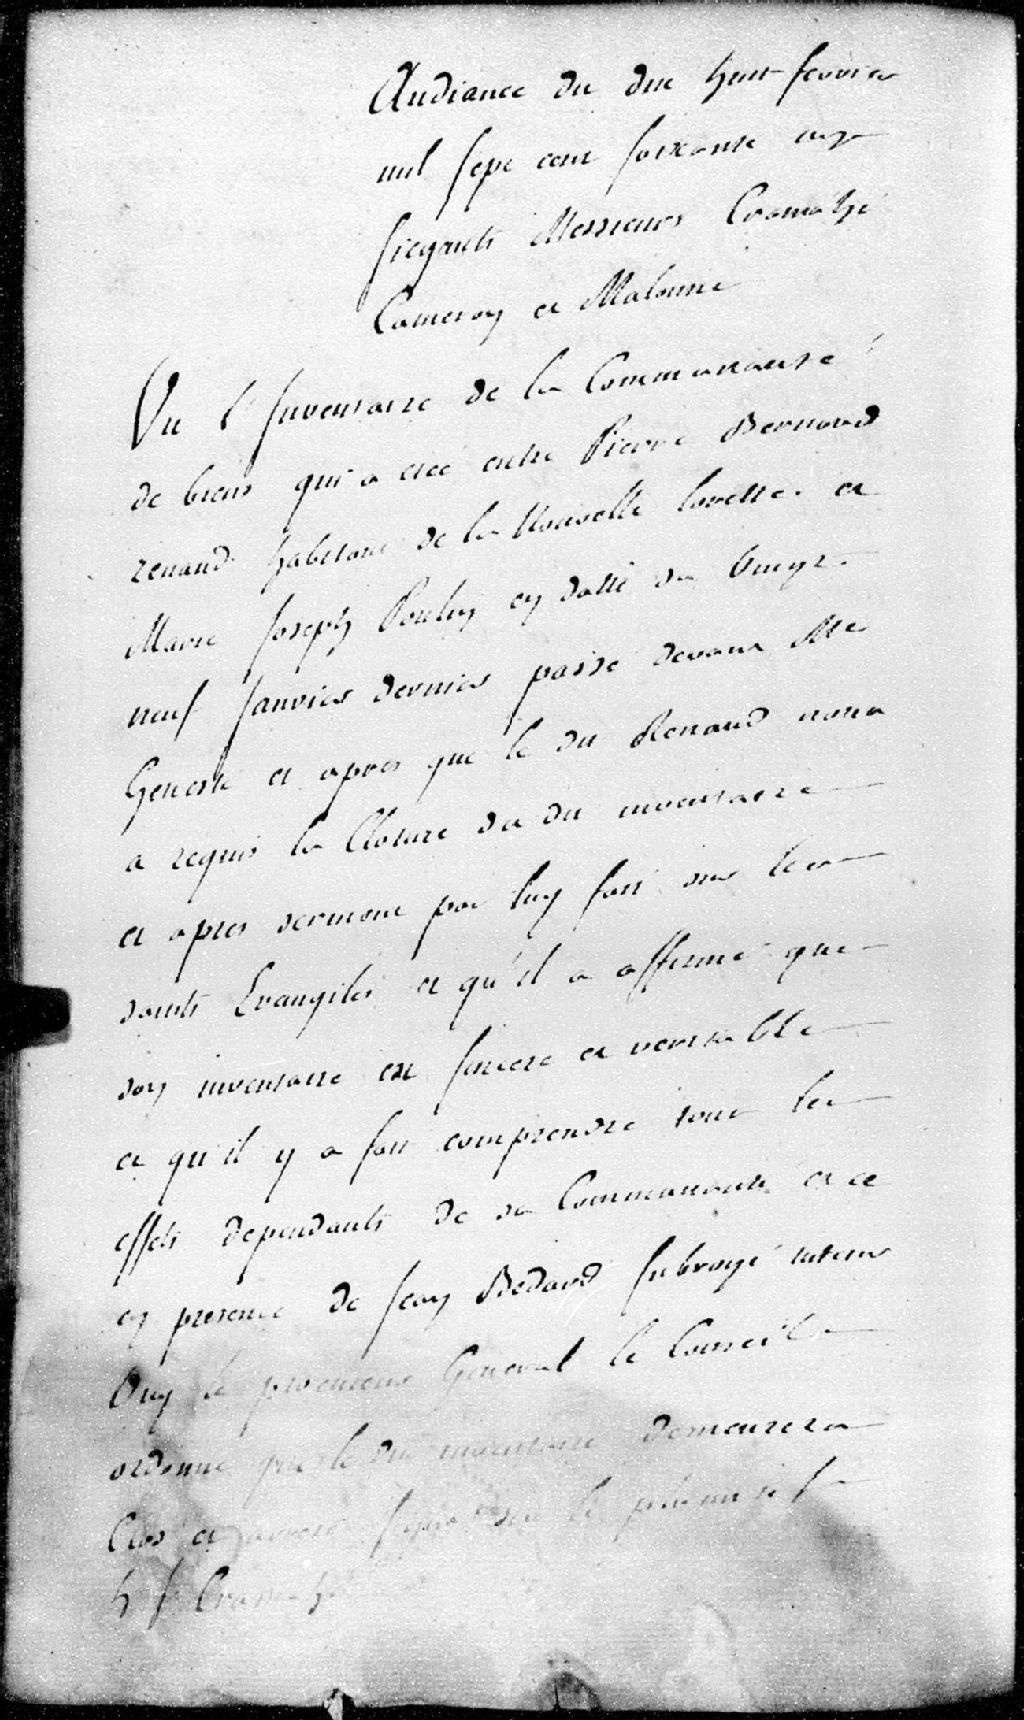 Audiance du dix huit fevrier
mil sept cent soixante un
siegants Messieurs Cramahé
Cameron et Malonne
Vu l'Inventaire de la Communauté
de biens qui a eté entre Pierre Bernard
renaud habitant de la Nouvelle lorette et
Marie Joseph Poulin en datte du Vingt
neuf Janvier dernier passé devant Me
Genest et apres que le dit Renaud nous
a requis la Cloture du dit inventaire
et apres serment par luy fait sur les
saints Evangiles et qu'il a affirmé que
son inventaire est sincere et veritable
et qu'il y a fait comprendre tous les
effets dependants de sa Communauté et ce
en presence de Jean Bedard subrogé tuteur
Ouy le procureur General le Conseil
ordonne que le dit inventaire demeurera
Clos et
h Cramahé